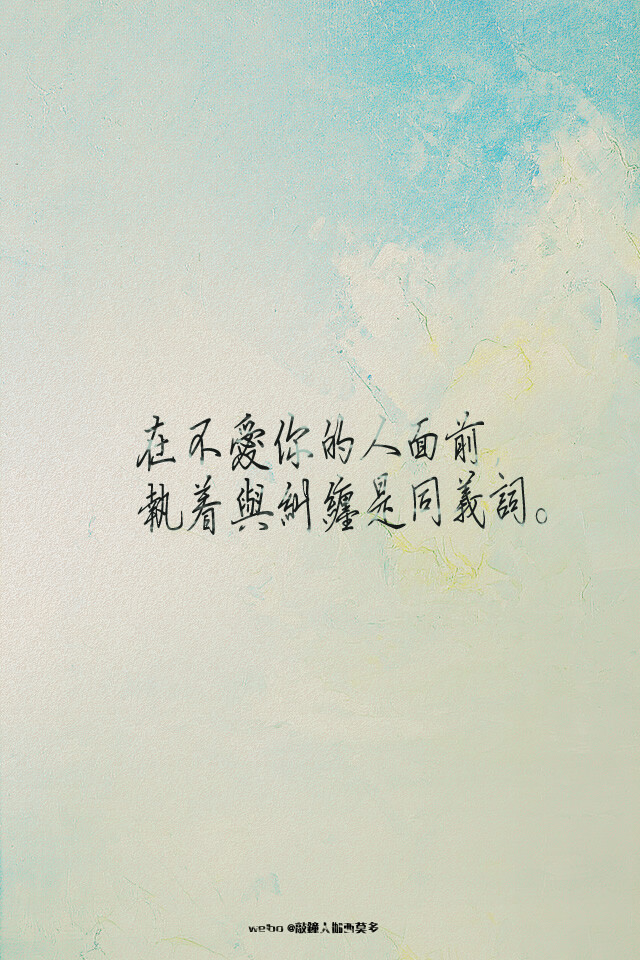 在不愛你的人面前,
執着與糾纏是同義詞。
weibo @敲鐘人加西莫多